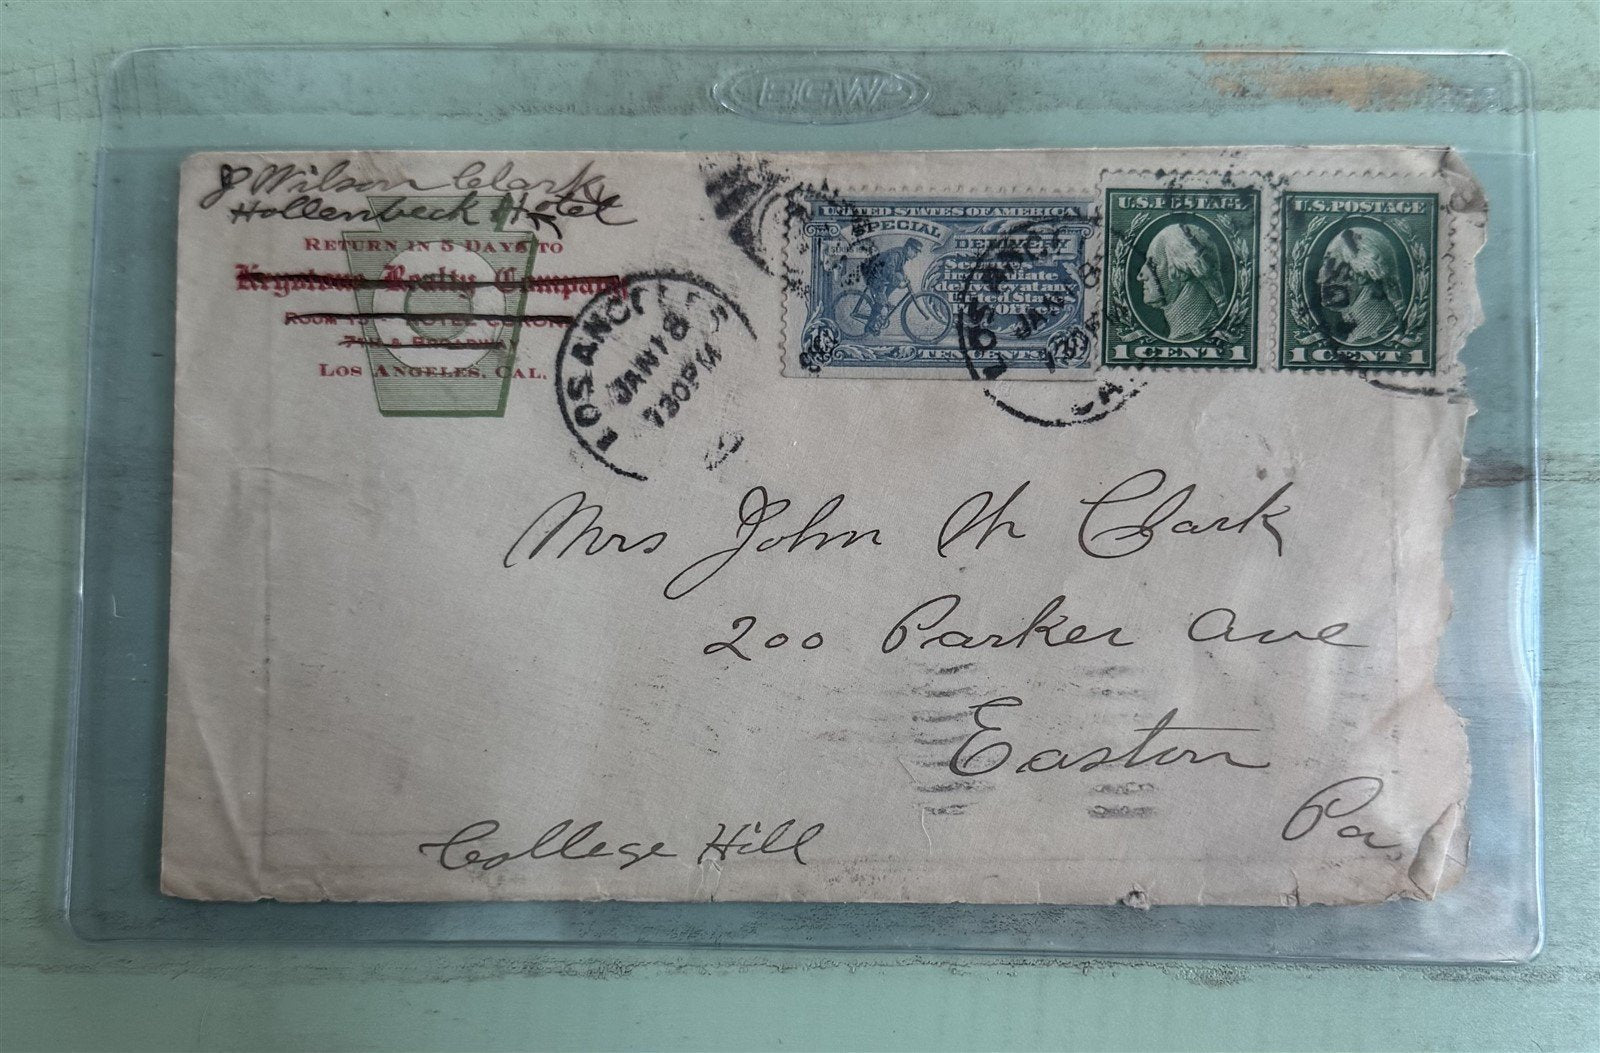 BCW
J Wilson Clark
Hollenbeck Hotel
RETURN IN 5 DAYS TO
Keystone Realty Company
ROOM HOTEL CORONA
7TH & BROADWAY
LOS ANGELES, CAL.
LOS ANGELES
JAN 18
730 PM
UNITED STATES OF AMERICA
SPECIAL DELIVERY
Secures
immediate
delivery at any
United States
Post Office
TEN CENTS
LOS
JAN 18
730 PM
CA
U.S. POSTAGE
1 CENT 1
U.S. POSTAGE
1 CENT 1
Mrs John W Clark
200 Parker Ave
Easton
Pa.
College Hill